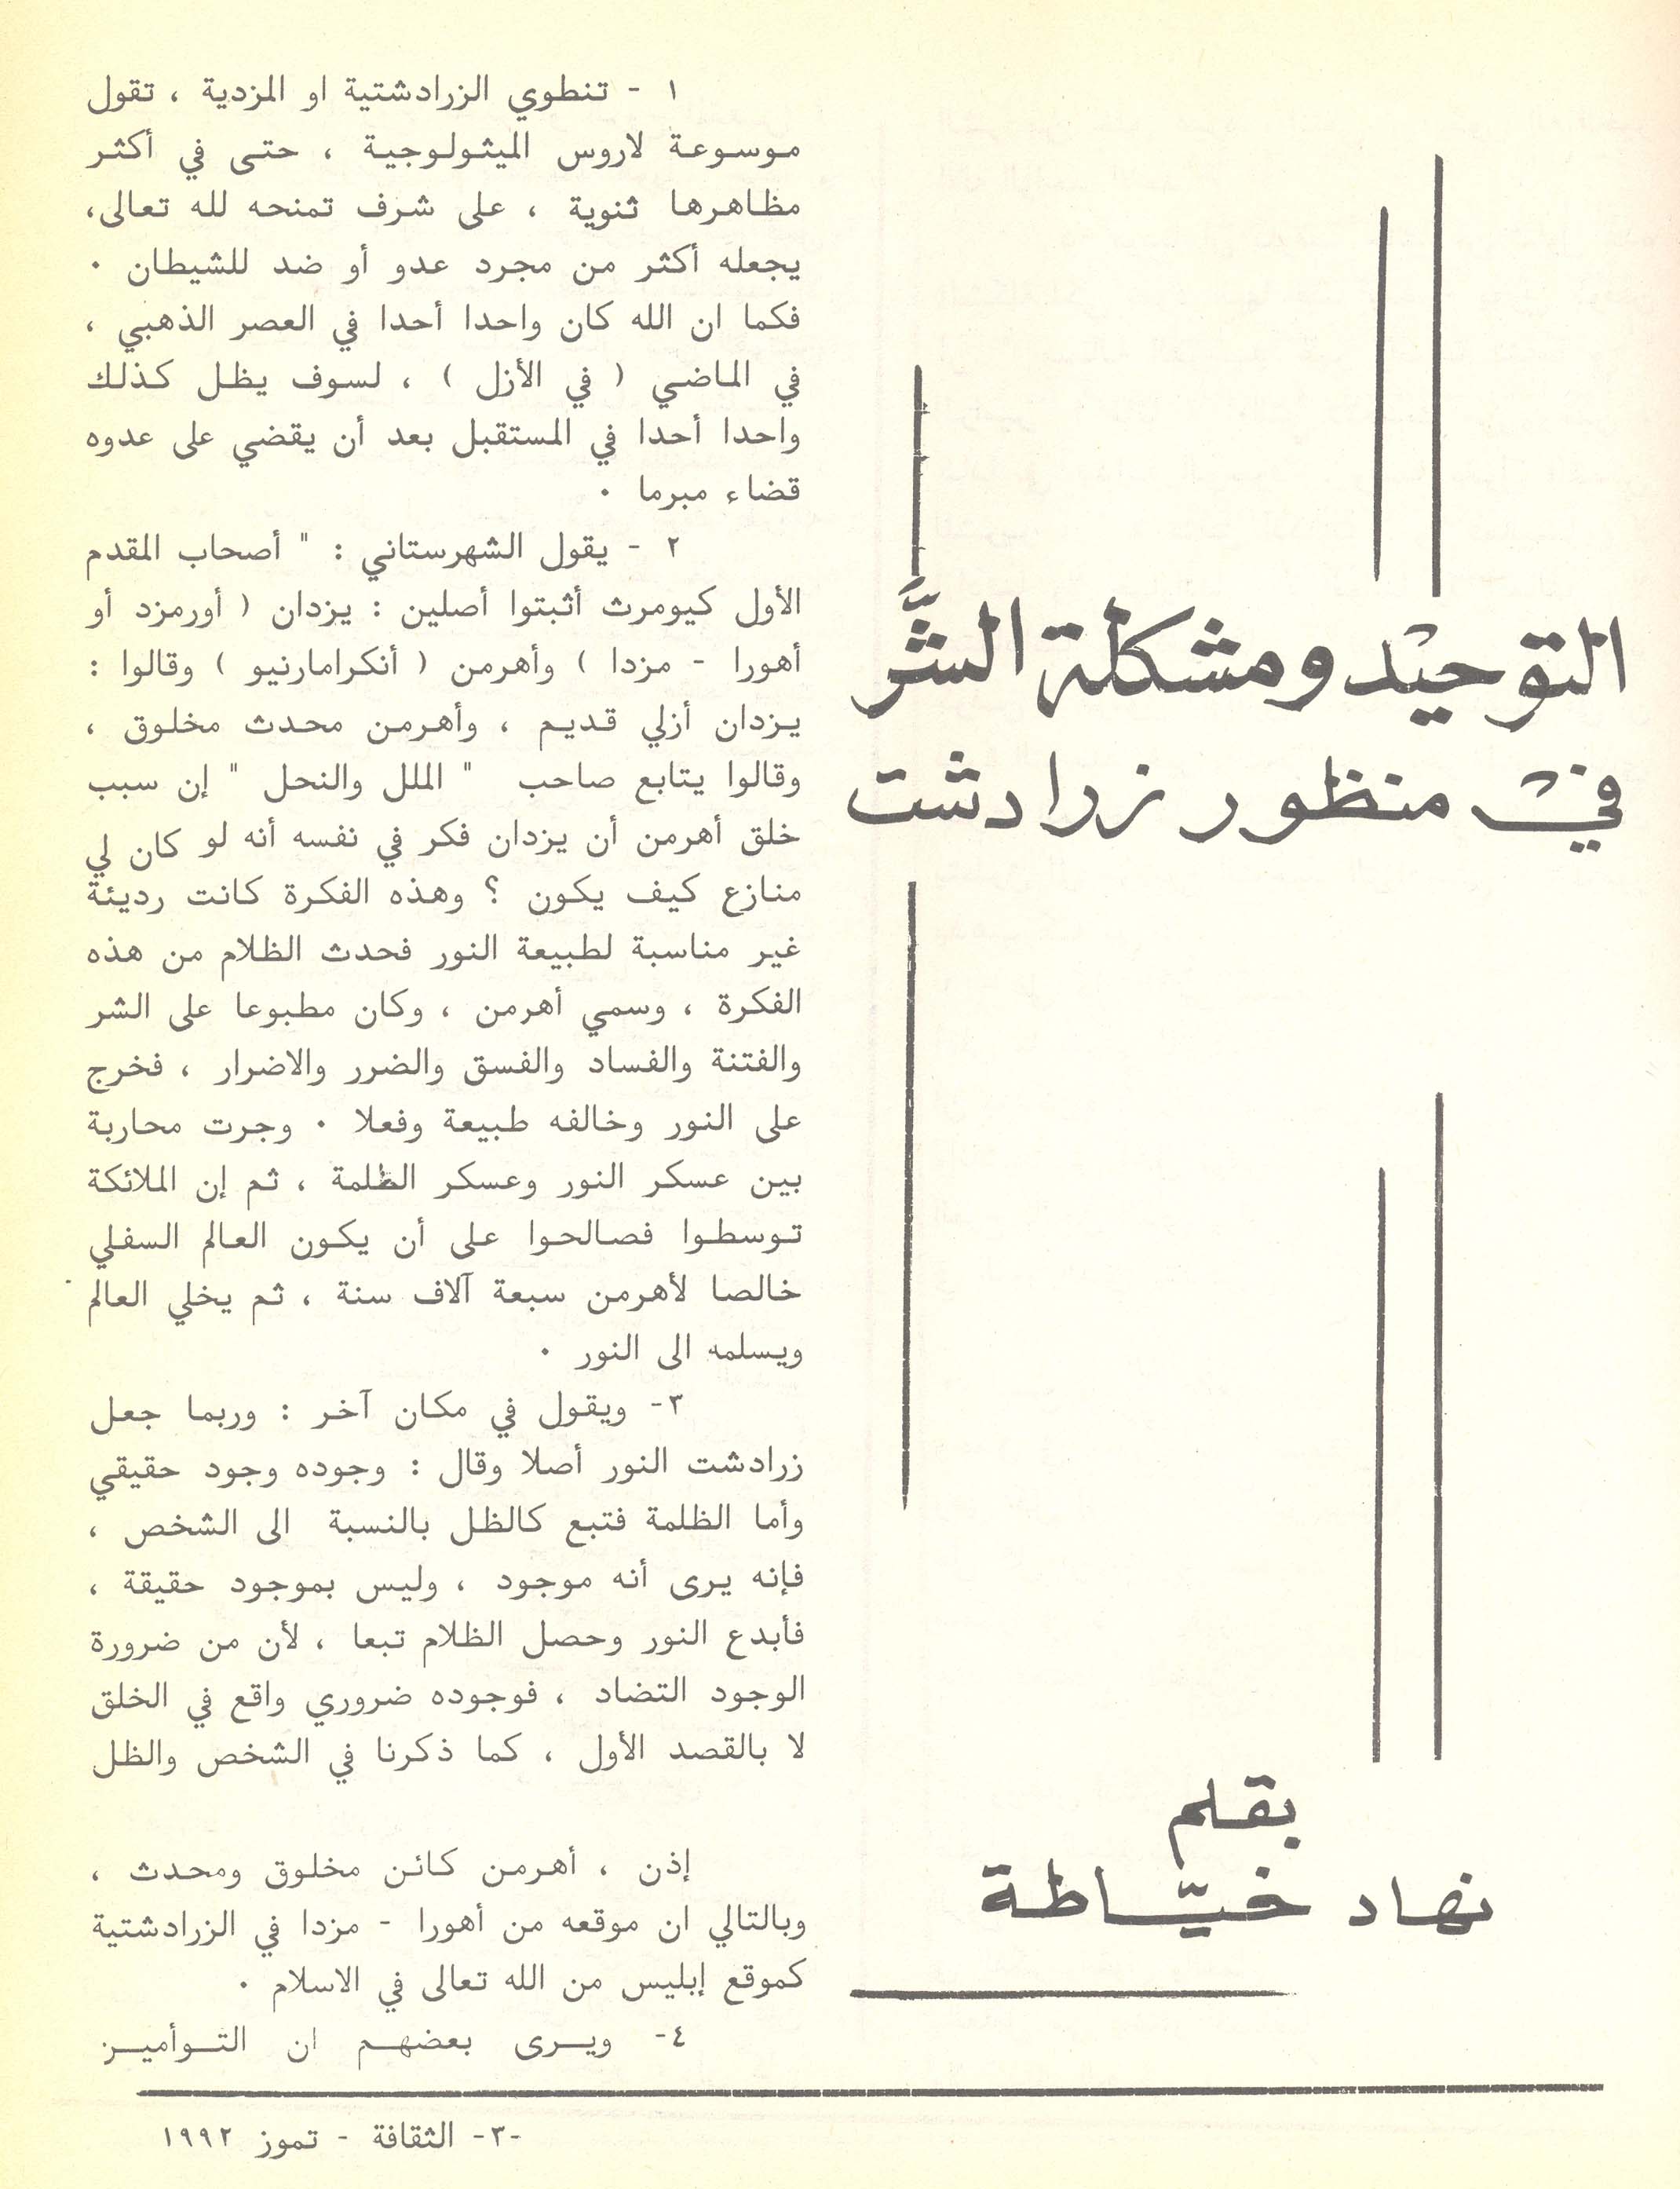 التوحيد ومشكلة الشَّر
في منظور زرادشت
بقلم
نهاد خيّاطة
١ - تنطوي الزرادشتية او المزدية ، تقول
موسوعة لاروس الميثولوجية ، حتى في أكثر
مظاهرها ثنوية ، على شرف تمنحه لله تعالى،
يجعله أكثر من مجرد عدو أو ضد للشيطان ٠
فكما ان الله كان واحدا أحدا في العصر الذهبي ،
في الماضي ( في الأزل ) ، لسوف يظل كذلك
واحدا أحدا في المستقبل بعد أن يقضي على عدوه
قضاء مبرما ٠
٢ - يقول الشهرستاني : " أصحاب المقدم
الأول كيومرث أثبتوا أصلين : يزدان ( أورمزد أو
أهورا - مزدا ) وأهرمن ( أنكرامارنيو ) وقالوا :
يزدان أزلي قديم ، وأهرمن محدث مخلوق ،
وقالوا يتابع صاحب " الملل والنحل " إن سبب
خلق أهرمن أن يزدان فكر في نفسه أنه لو كان لي
منازع كيف يكون ؟ وهذه الفكرة كانت رديئة
غير مناسبة لطبيعة النور فحدث الظلام من هذه
الفكرة ، وسمي أهرمن ، وكان مطبوعا على الشر
والفتنة والفساد والفسق والضرر والاضرار ، فخرج
على النور وخالفه طبيعة وفعلا ٠ وجرت محاربة
بين عسكر النور وعسكر الظلمة ، ثم إن الملائكة
توسطوا فصالحوا على أن يكون العالم السفلي
خالصا لأهرمن سبعة آلاف سنة ، ثم يخلي العالم
ويسلمه الى النور ٠
٣- ويقول في مكان آخر : وربما جعل
زرادشت النور أصلا وقال : وجوده وجود حقيقي
وأما الظلمة فتبع كالظل بالنسبة الى الشخص ،
فإنه يرى أنه موجود ، وليس بموجود حقيقة ،
فأبدع النور وحصل الظلام تبعا ، لأن من ضرورة
الوجود التضاد ، فوجوده ضروري واقع في الخلق
لا بالقصد الأول ، كما ذكرنا في الشخص والظل
إذن ، أهرمن كائن مخلوق ومحدث ،
وبالتالي ان موقعه من أهورا - مزدا في الزرادشتية
كموقع إبليس من الله تعالى في الاسلام ٠
٤- ويرى بعضهم ان التوأمين
-٣- الثقافة - تموز ١٩٩٢